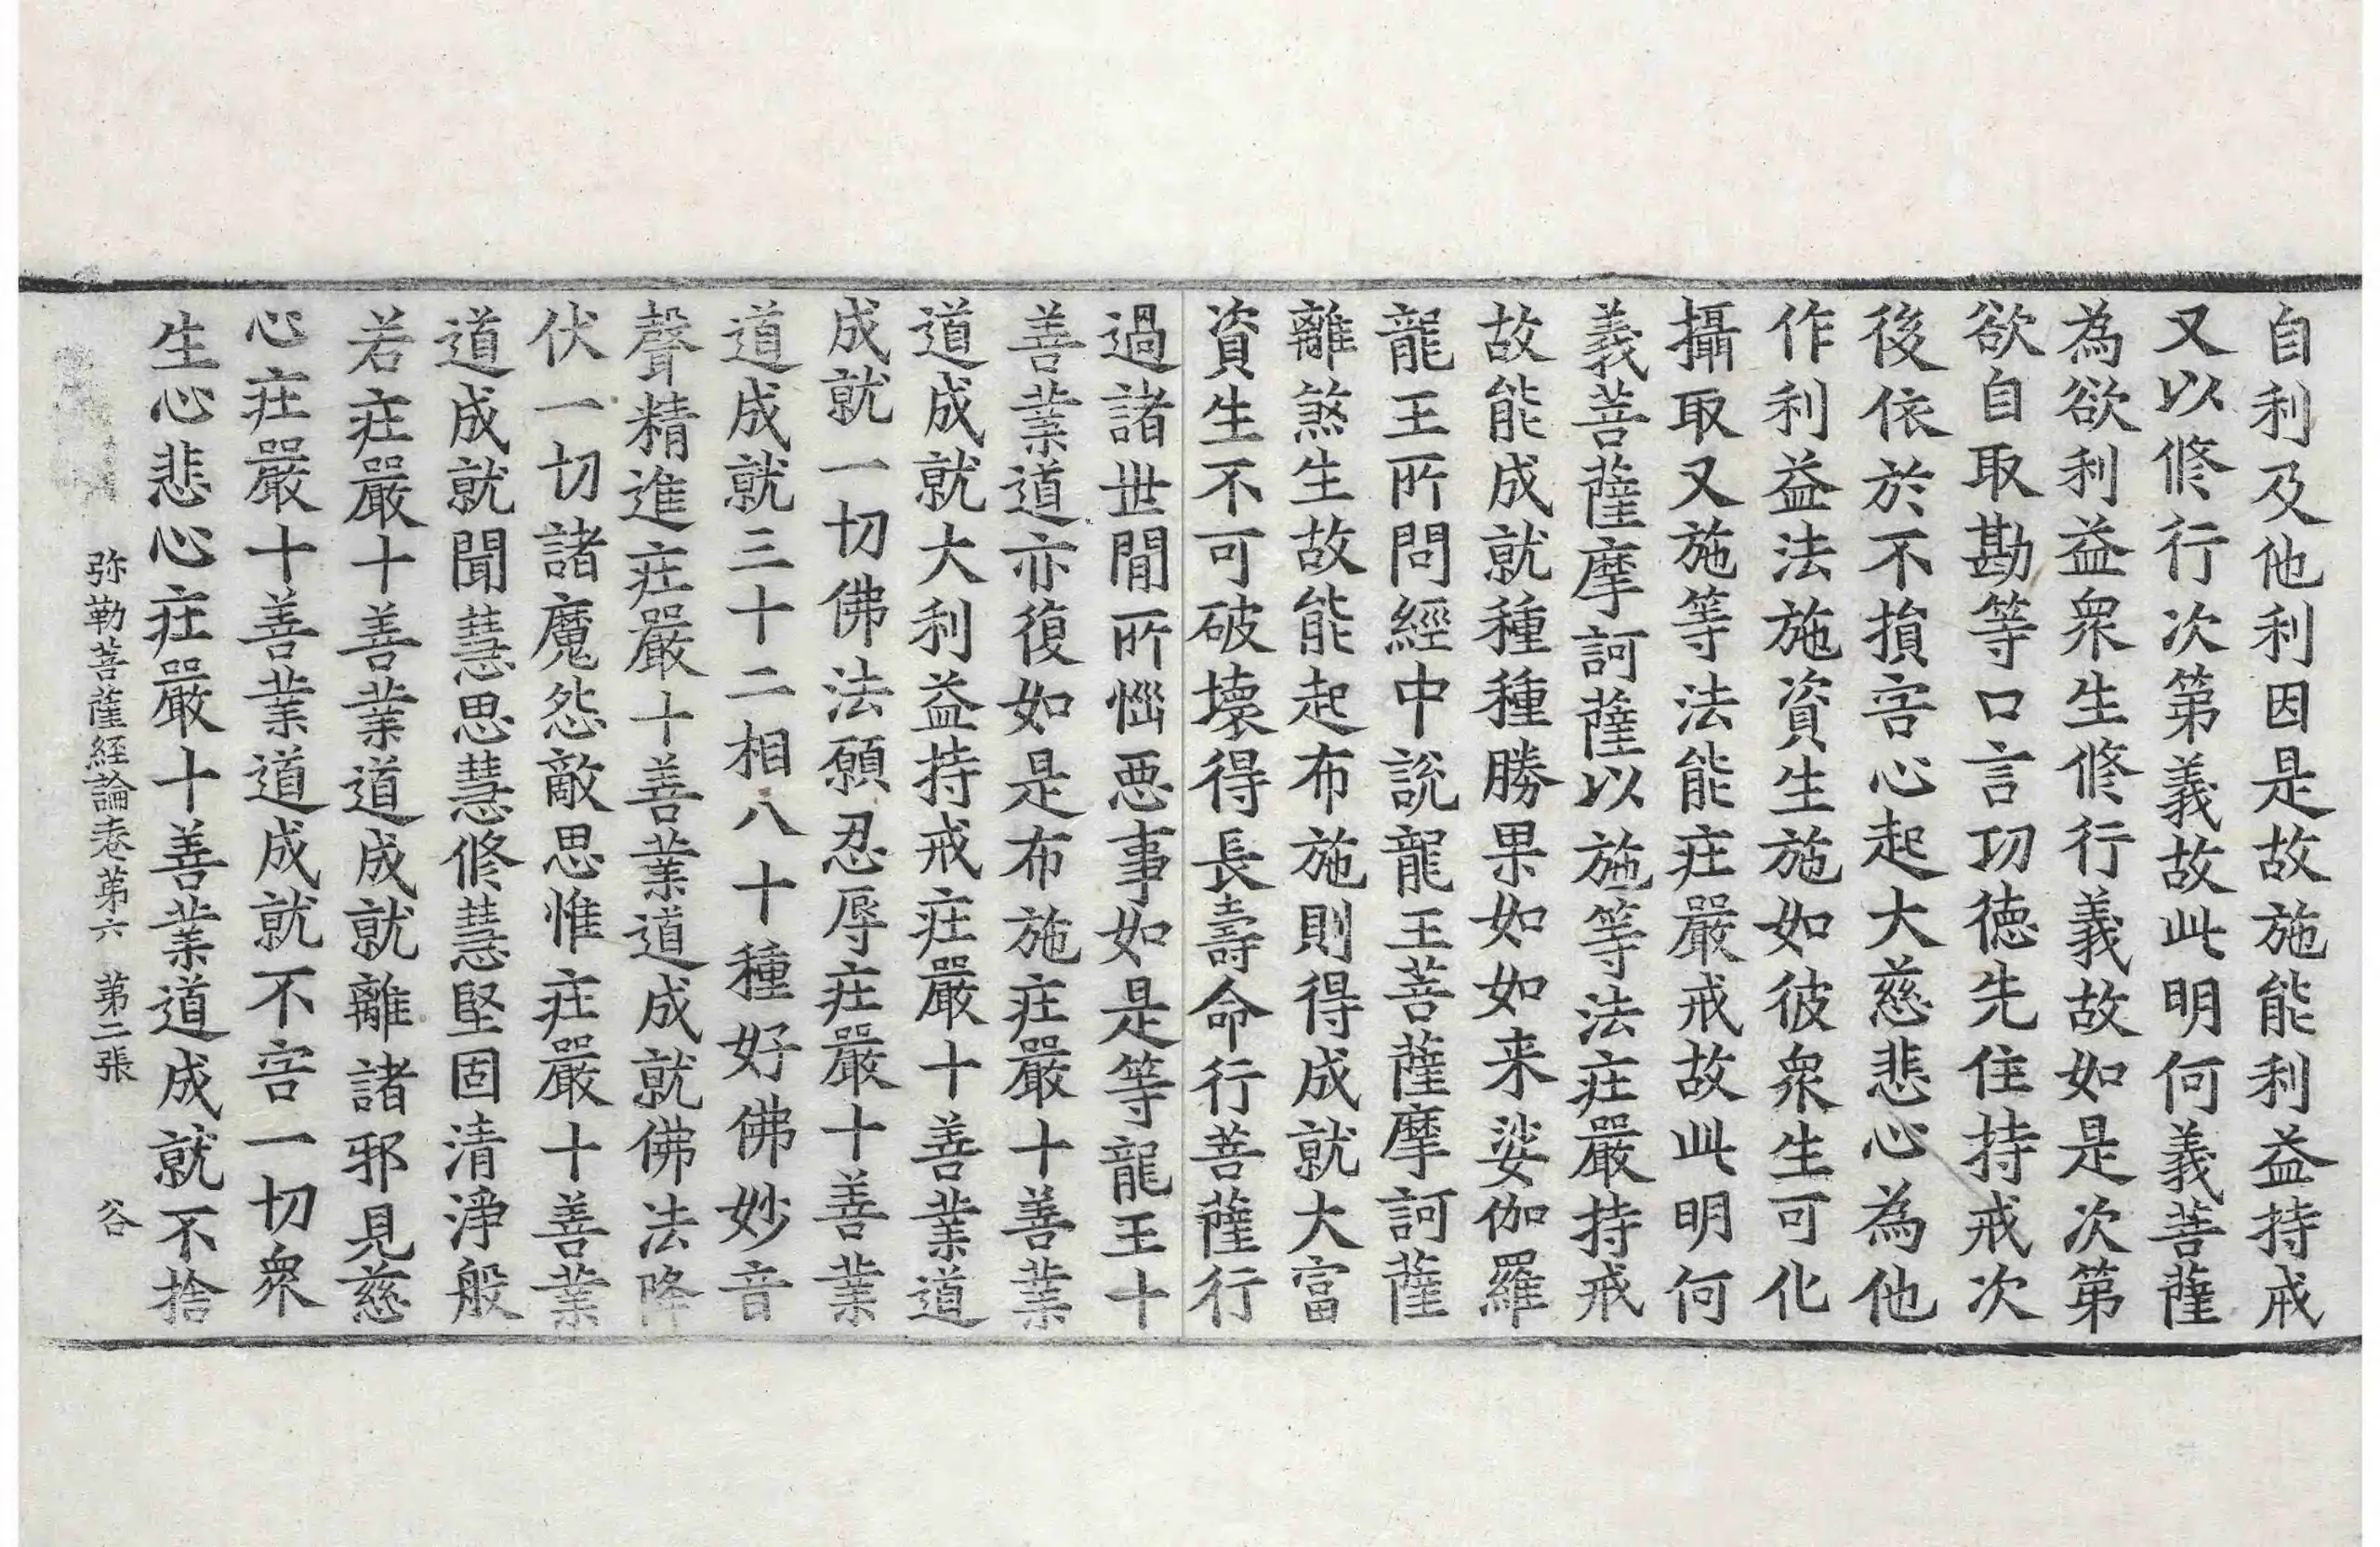 自利及他利因是故施能利益持戒
又以修行次第義故此明何義菩薩
為欲利益衆生修行義故如是次第
欲自取勘等口言功德先住持戒次
後依於不損害心起大慈悲心為他
作利益法施資生施如彼衆生可化
攝取又施等法能莊嚴戒故此明何
義菩薩摩訶薩以施等法莊嚴持戒
故能成就種種勝果如如来娑伽羅
龍王所問經中說龍王菩薩摩訶薩
離煞生故能起布施則得成就大富
資生不可破壞得長壽命行菩薩行
過諸世間所惱惡事如是等龍王十
善業道亦復如是布施莊嚴十善業
道成就大利益持戒莊嚴十善業道
成就一切佛法願忍辱莊嚴十善業
道成就三十二相八十種好佛妙音
聲精進莊嚴十善業道成就佛法降
伏一切諸魔怨敵思惟莊嚴十善業
道成就聞慧思慧修慧堅固清淨般
若莊嚴十善業道成就離諸邪見慈
心莊嚴十善業道成就不害一切衆
生心悲心莊嚴十善業道成就不捨
弥勒菩薩経論卷第六 第二張 谷